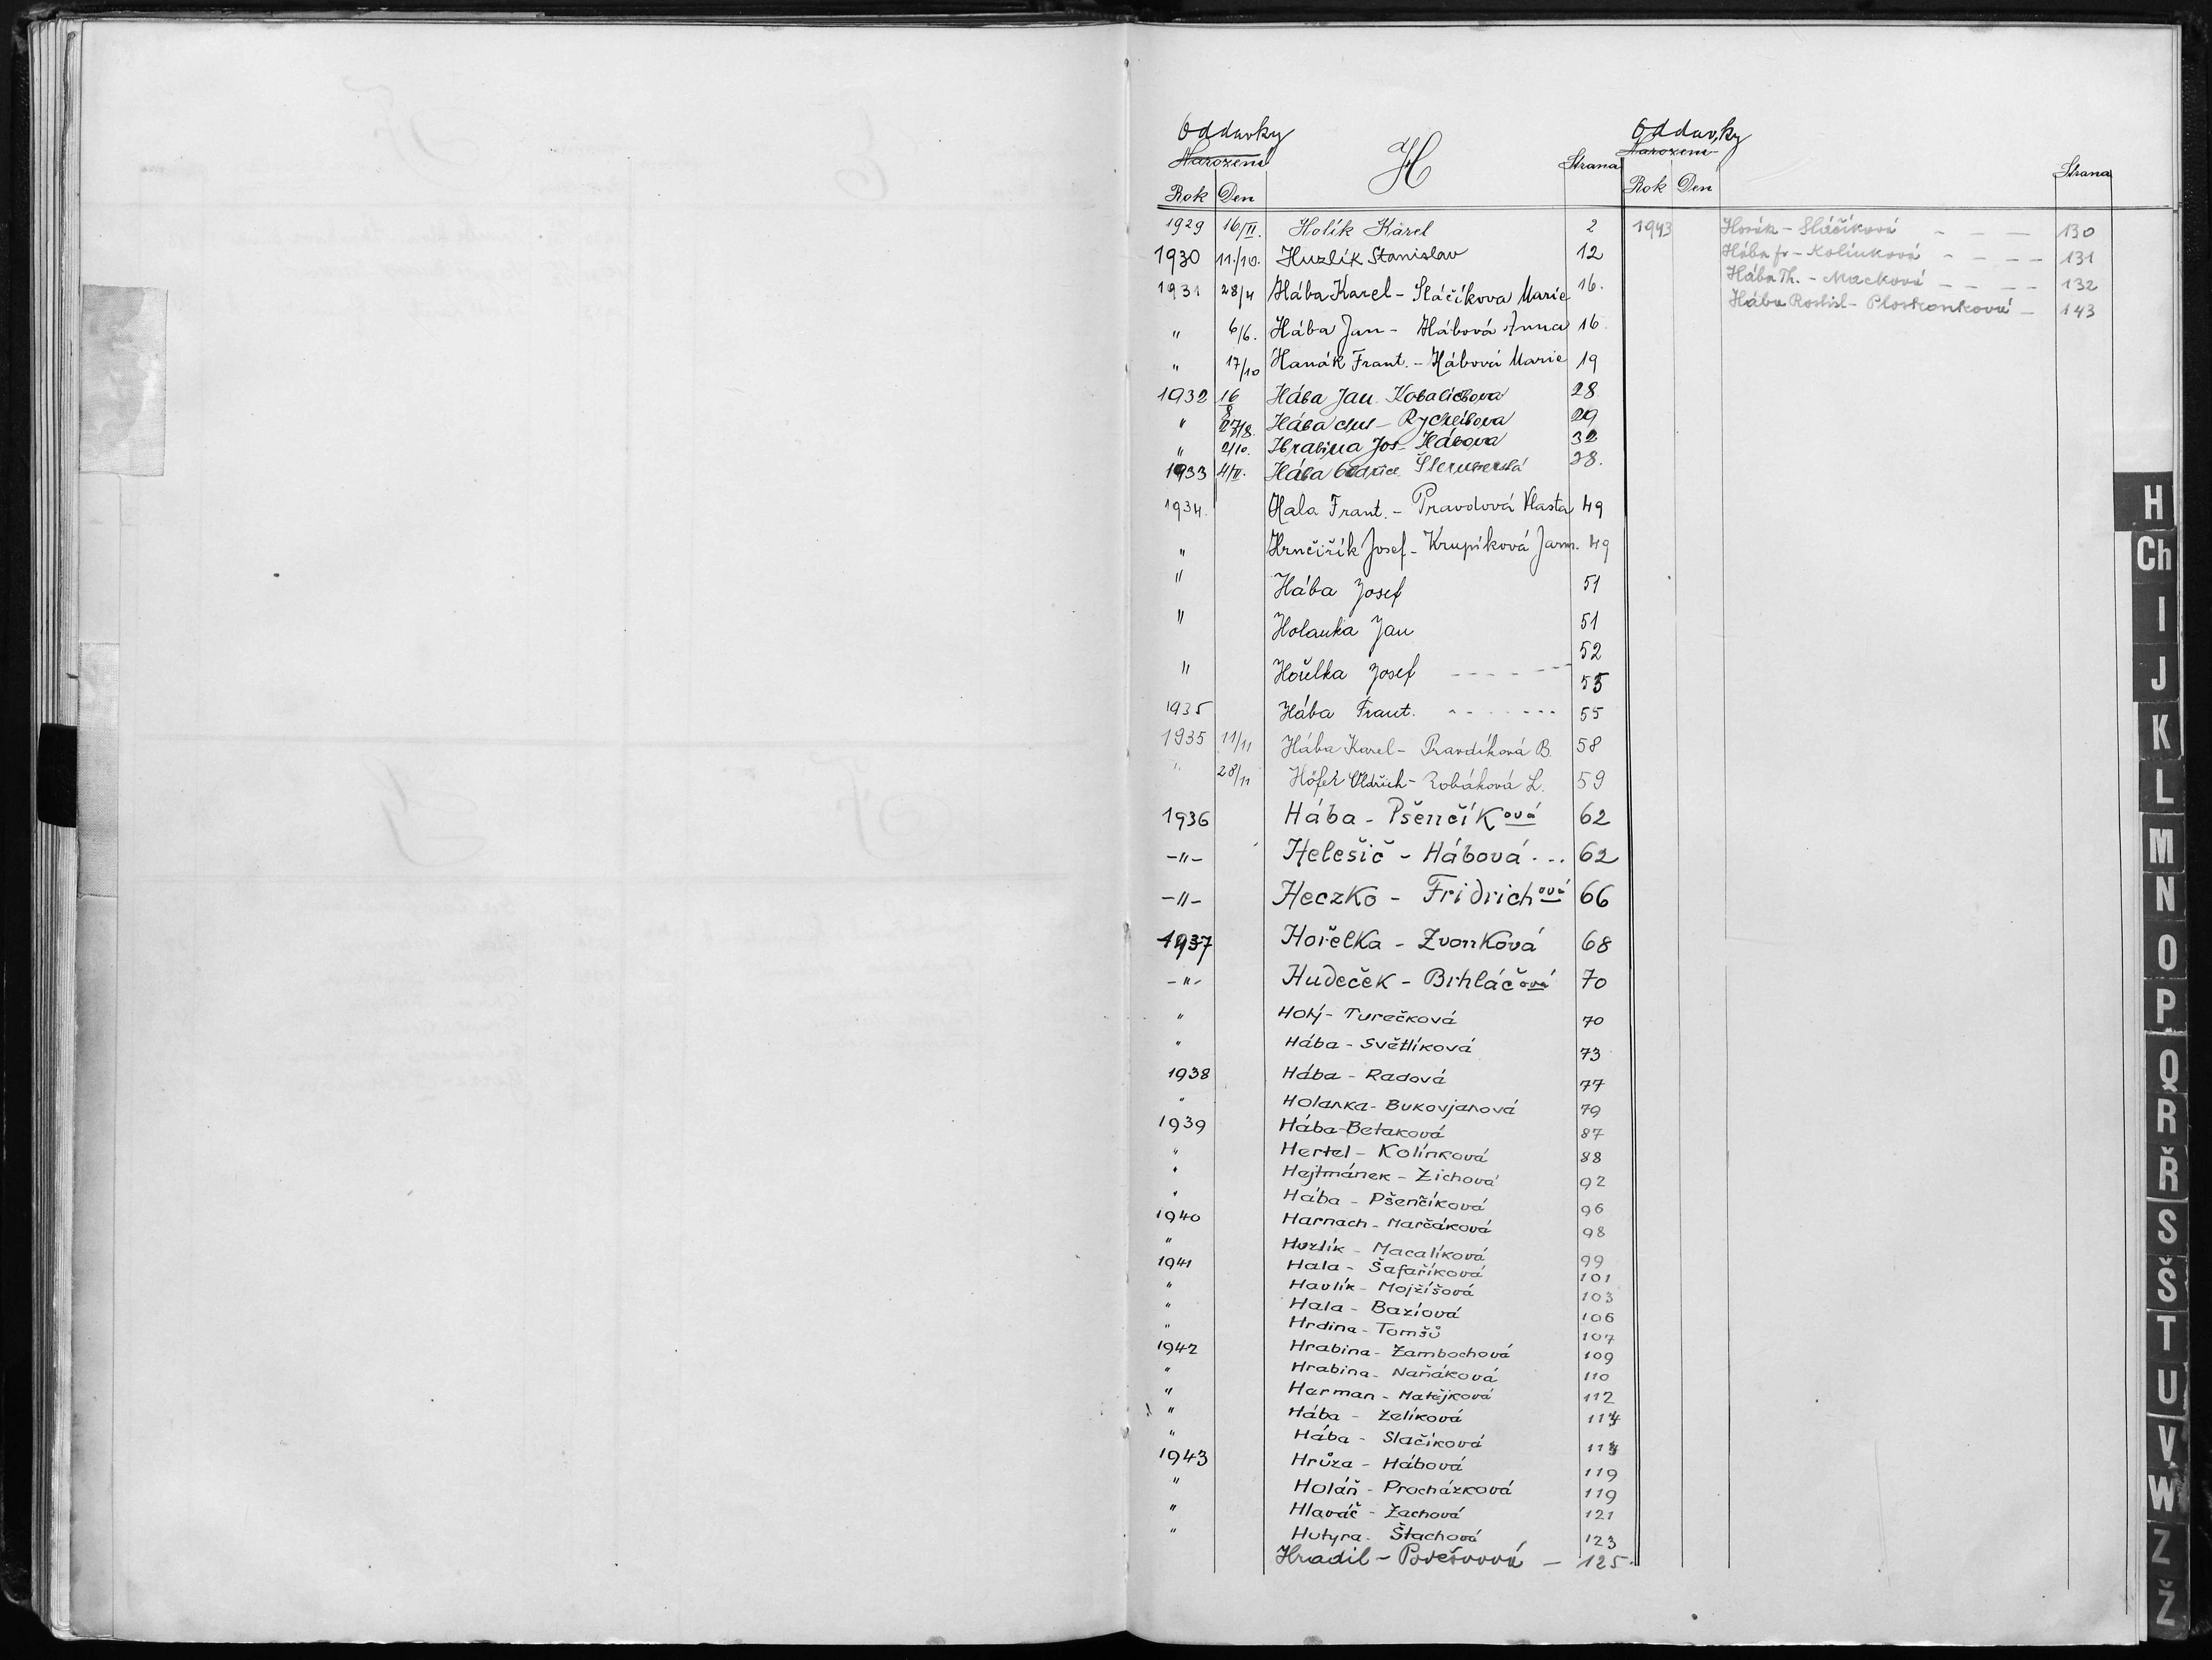 Oddavky
Narození
H
Strana
Rok Den
1929 16/II. Holík Karel 2
1930 11./10. Huzlík Stanislav 12
1931 28/4 Hába Karel - Sláčíkova Marie 16.
" 6/6. Hába Jan - Hábová Anna 16
" 17/10 Hanák Frant. - Hábová Marie 19
1932 16/8 Hába Jan. 28
" 27/8. Hába - 29
" 2/10. Hrabina Jos - Hábova 32
1933 4/II. Hába 38.
1934. Hala Frant. - Pravdová Vlasta 49
" Hrnčiřík Josef - Krupíková Jarm. 49
" Hába Josef 51
" Holanka Jan 51
52
" Hořelka Josef - - - - - - 55
1935 Hába Frant. - - - - - - - 55
1935 11/11 Hába Karel - Pravdíková B. 58
" 28/11 Höfer Oldřich - Zobáková L. 59
1936 Hába - Pšenčíková 62
-"- Helešič - Hábová . - . 62
-"- Heczko - Fridrichová 66
1937 Hořelka - Zvonková 68
-"- Hudeček - Brhláčová 70
" Holý - Turečková 70
" Hába - Světlíková 73
1938 Hába - Radová 77
" Holanka - Bukovjanová 79
1939 Hába - Betaková 87
" Hertel - Kolínková 88
" Hejtmánek - Zichová 92
" Hába - Pšenčíková 96
1940 Harnach - Marčáková 98
" Huzlík - Macalíková 99
1941 Hala - Šafaříková 101
" Havlík - Mojžíšová 103
" Hala - Bazíová 106
" Hrdina - Tomšů 107
1942 Hrabina - Žambochová 109
" Hrabina - Naňáková 110
" Herman - Matějková 112
" Hába - Zelíková 114
" Hába - Slačíková 114
1943 Hrůza - Hábová 119
" Holáň - Procházková 119
" Hlaváč - Zachová 121
" Hutyra - Štachová 123
Hradil - 125
Oddavky
Narození
Strana
Rok Den
1943 Horák - Sláčíková - - - 130
Hába fr - Kolínková - - - - 131
Hába Th. - Macková - - - - 132
Hába Rostisl - Ploskonková - 143
H
Ch
I
J
K
L
M
N
O
P
Q
R
Ř
S
Š
T
U
V
W
Z
Ž